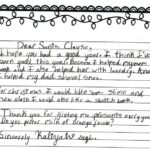 Dear Santa Clause,
I hope you had a good year. I think I've
been good this year because I helped my mom
and I also helped her with laundry. And
I helped my dad shovel snow.
For christmas I would like some slime and
new shoes I would also like a sketch book.
Thank you for giving me presents every year
do you prefer milk or
Sincerely Kaitlyn